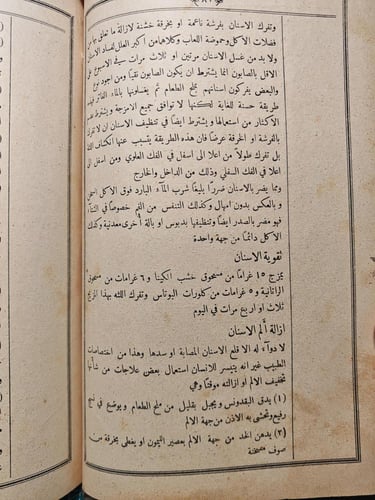 وتفرك الاسنان بفرشة ناعمة او بخرقة خشنة لازالة ما تعلق بها من
فضلات الاكل وحموضة اللعاب وكلاهما من اكبر العلل لفساد الاسنان
ولا بد من غسل الاسنان مرتين او ثلاث مرات في الاسبوع على
الاقل بالصابون انما يشترط ان يكون الصابون نقيًا ومن اجود نوع
والبعض يفركون اسنانهم بملح الطعام ثم يغسلونها بالماء الفاتر فهذه
طريقة حسنة للغاية لكنها لا توافق جميع الامزجة ويشترط عدم
الاكثار من استعمالها ويشترط ايضًا في تنظيف الاسنان ان لا تفرك
بالفرشة او الخرقة عرضًا فان هذه الطريقة يتسبب عنها انكشاف اللثة
بل تفرك طولًا من اعلا الى اسفل في الفك العلوي ومن اسفل الى
اعلا في الفك السفلي وذلك من الداخل والخارج
ومما يضر بالاسنان ضررًا بليغًا شرب الماء البارد فوق الاكل السخن
و بالعكس بدون امهال وكذلك التنفس من الفم خصوصًا في الشتاء
فهو مضر بالصدر ايضًا وتنظيفها بدبوس او بآلة أخرى معدنية وكذلك
الاكل دائمًا من جهة واحدة
تقوية الاسنان
يمزج ١٥ غرامًا من مسحوق خشب الكينا و ٦ غرامات من مسحوق
الراتانية و ٥ غرامات من كلورات البوتاس وتفرك اللثه بهذا المزيج
ثلاث او اربع مرات في اليوم
ازالة ألم الاسنان
لا دوآء له الا قلع الاسنان المصابة او سدها وهذا من اختصاصات
الطبيب غير انه يتيسر للانسان استعمال بعض علاجات من شأنها
تخفيف الالم او ازالته موقتًا وهي
(١) يدق البقدونس ويجبل بقليل من ملح الطعام ويوضع في نسيج
رفيع وتحشى به الاذن من جهة الالم
(٢) يدهن الخد من جهة الالم بعصير الليمون او يغطى بخرقة من
صوف مسخنة